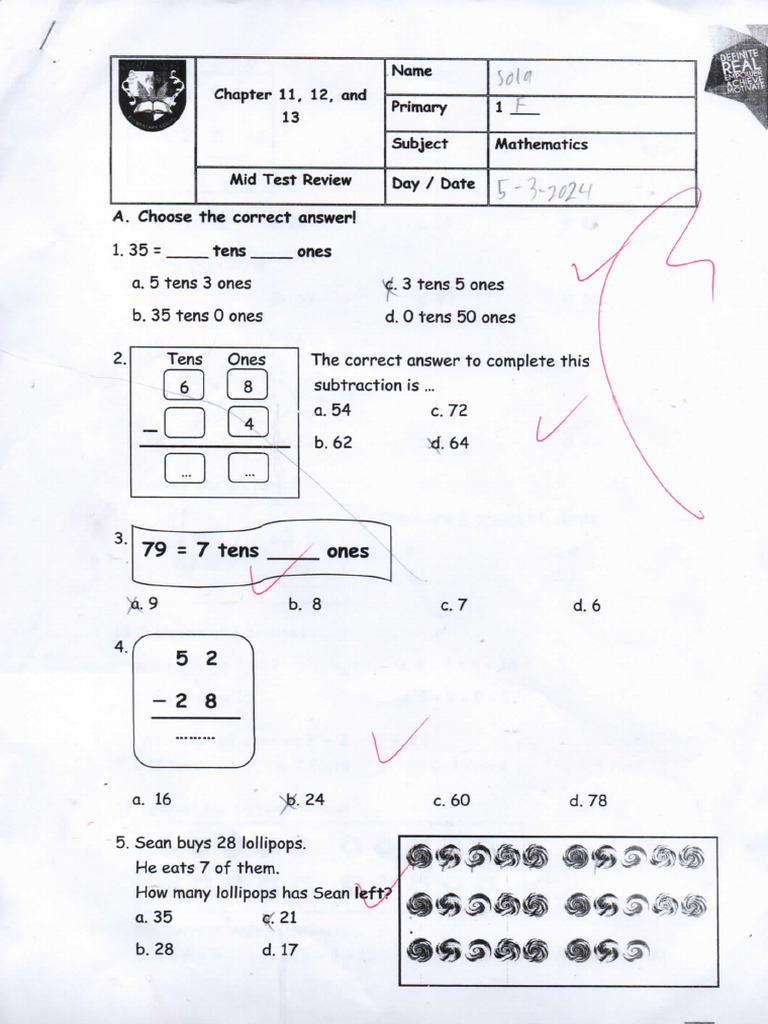 DEFINITE
REAL
EMPOWER
ACHIEVE
MOTIVATE
Chapter 11, 12, and
13
Mid Test Review
Name Sola
Primary 1 F
Subject Mathematics
Day / Date 5-3-2024
A. Choose the correct answer!
1. 35 = ____ tens ____ ones
a. 5 tens 3 ones c. 3 tens 5 ones
b. 35 tens 0 ones d. 0 tens 50 ones
2. Tens Ones
6 8
– 4
... ...
The correct answer to complete this
subtraction is ...
a. 54 c. 72
b. 62 d. 64
3. 79 = 7 tens ____ ones
a. 9 b. 8 c. 7 d. 6
4.
5 2
– 2 8
.........
a. 16 b. 24 c. 60 d. 78
5. Sean buys 28 lollipops.
He eats 7 of them.
How many lollipops has Sean left?
a. 35 c. 21
b. 28 d. 17